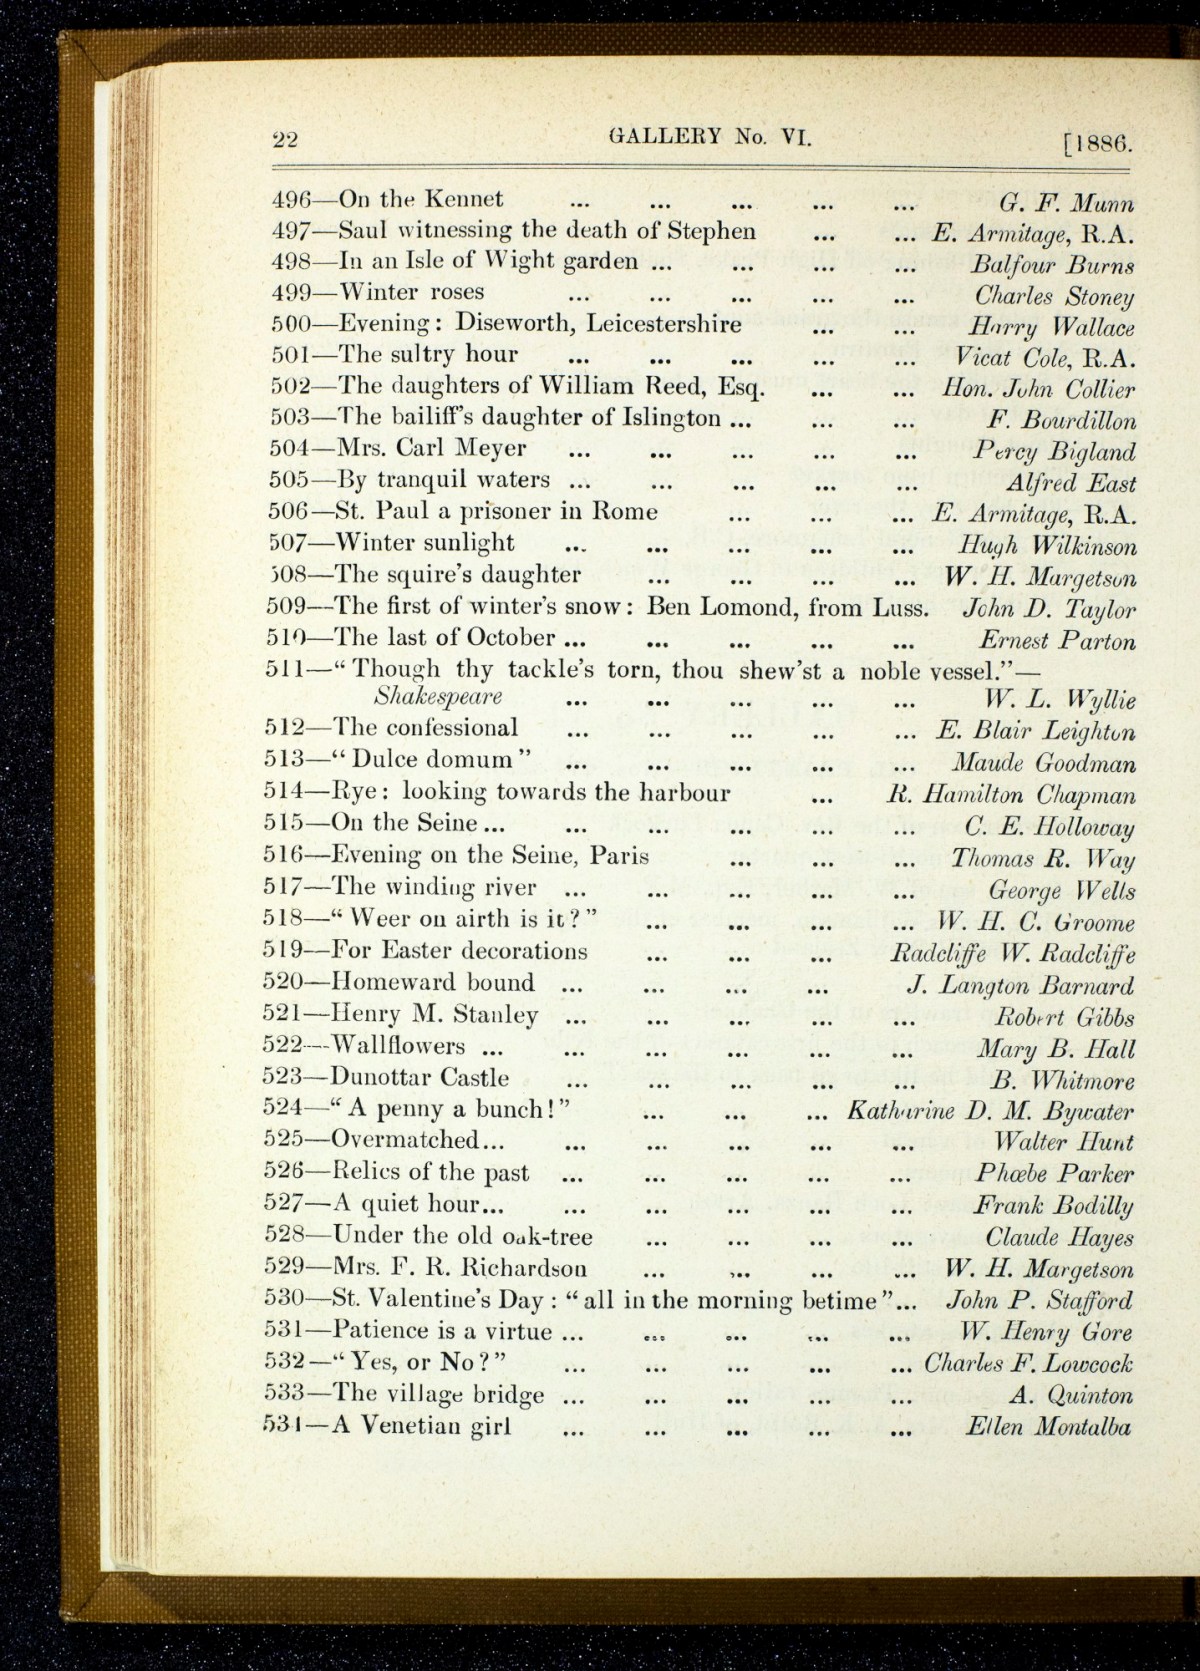 22 GALLERY No. VI. [1886.
496—On the Kennet ... ... ... ... ... G. F. Munn
497—Saul witnessing the death of Stephen ... ... E. Armitage, R.A.
498—In an Isle of Wight garden ... ... ... ... Balfour Burns
499—Winter roses ... ... ... ... ... Charles Stoney
500—Evening: Diseworth, Leicestershire ... ... Harry Wallace
501—The sultry hour ... ... ... ... ... Vicat Cole, R.A.
502—The daughters of William Reed, Esq. ... ... Hon. John Collier
503—The bailiff's daughter of Islington ... ... ... F. Bourdillon
504—Mrs. Carl Meyer ... ... ... ... ... Percy Bigland
505—By tranquil waters ... ... ... ... ... Alfred East
506—St. Paul a prisoner in Rome ... ... ... E. Armitage, R.A.
507—Winter sunlight ... ... ... ... ... Hugh Wilkinson
508—The squire's daughter ... ... ... ... W. H. Margetson
509—The first of winter's snow: Ben Lomond, from Luss. John D. Taylor
510—The last of October ... ... ... ... ... Ernest Parton
511—“Though thy tackle's torn, thou shew'st a noble vessel.”—
Shakespeare ... ... ... ... ... W. L. Wyllie
512—The confessional ... ... ... ... ... E. Blair Leighton
513—“Dulce domum” ... ... ... ... ... Maude Goodman
514—Rye: looking towards the harbour ... R. Hamilton Chapman
515—On the Seine ... ... ... ... ... ... C. E. Holloway
516—Evening on the Seine, Paris ... ... ... Thomas R. Way
517—The winding river ... ... ... ... ... George Wells
518—“Weer on airth is it?” ... ... ... ... W. H. C. Groome
519—For Easter decorations ... ... ... Radcliffe W. Radcliffe
520—Homeward bound ... ... ... ... J. Langton Barnard
521—Henry M. Stanley ... ... ... ... ... Robert Gibbs
522—Wallflowers ... ... ... ... ... ... Mary B. Hall
523—Dunottar Castle ... ... ... ... ... B. Whitmore
524—“A penny a bunch!” ... ... ... Katharine D. M. Bywater
525—Overmatched ... ... ... ... ... ... Walter Hunt
526—Relics of the past ... ... ... ... ... Phœbe Parker
527—A quiet hour ... ... ... ... ... ... Frank Bodilly
528—Under the old oak-tree ... ... ... ... Claude Hayes
529—Mrs. F. R. Richardson ... ... ... ... W. H. Margetson
530—St. Valentine's Day: “all in the morning betime” ... John P. Stafford
531—Patience is a virtue ... ... ... ... ... W. Henry Gore
532—“Yes, or No?” ... ... ... ... ... Charles F. Lowcock
533—The village bridge ... ... ... ... ... A. Quinton
534—A Venetian girl ... ... ... ... ... Ellen Montalba